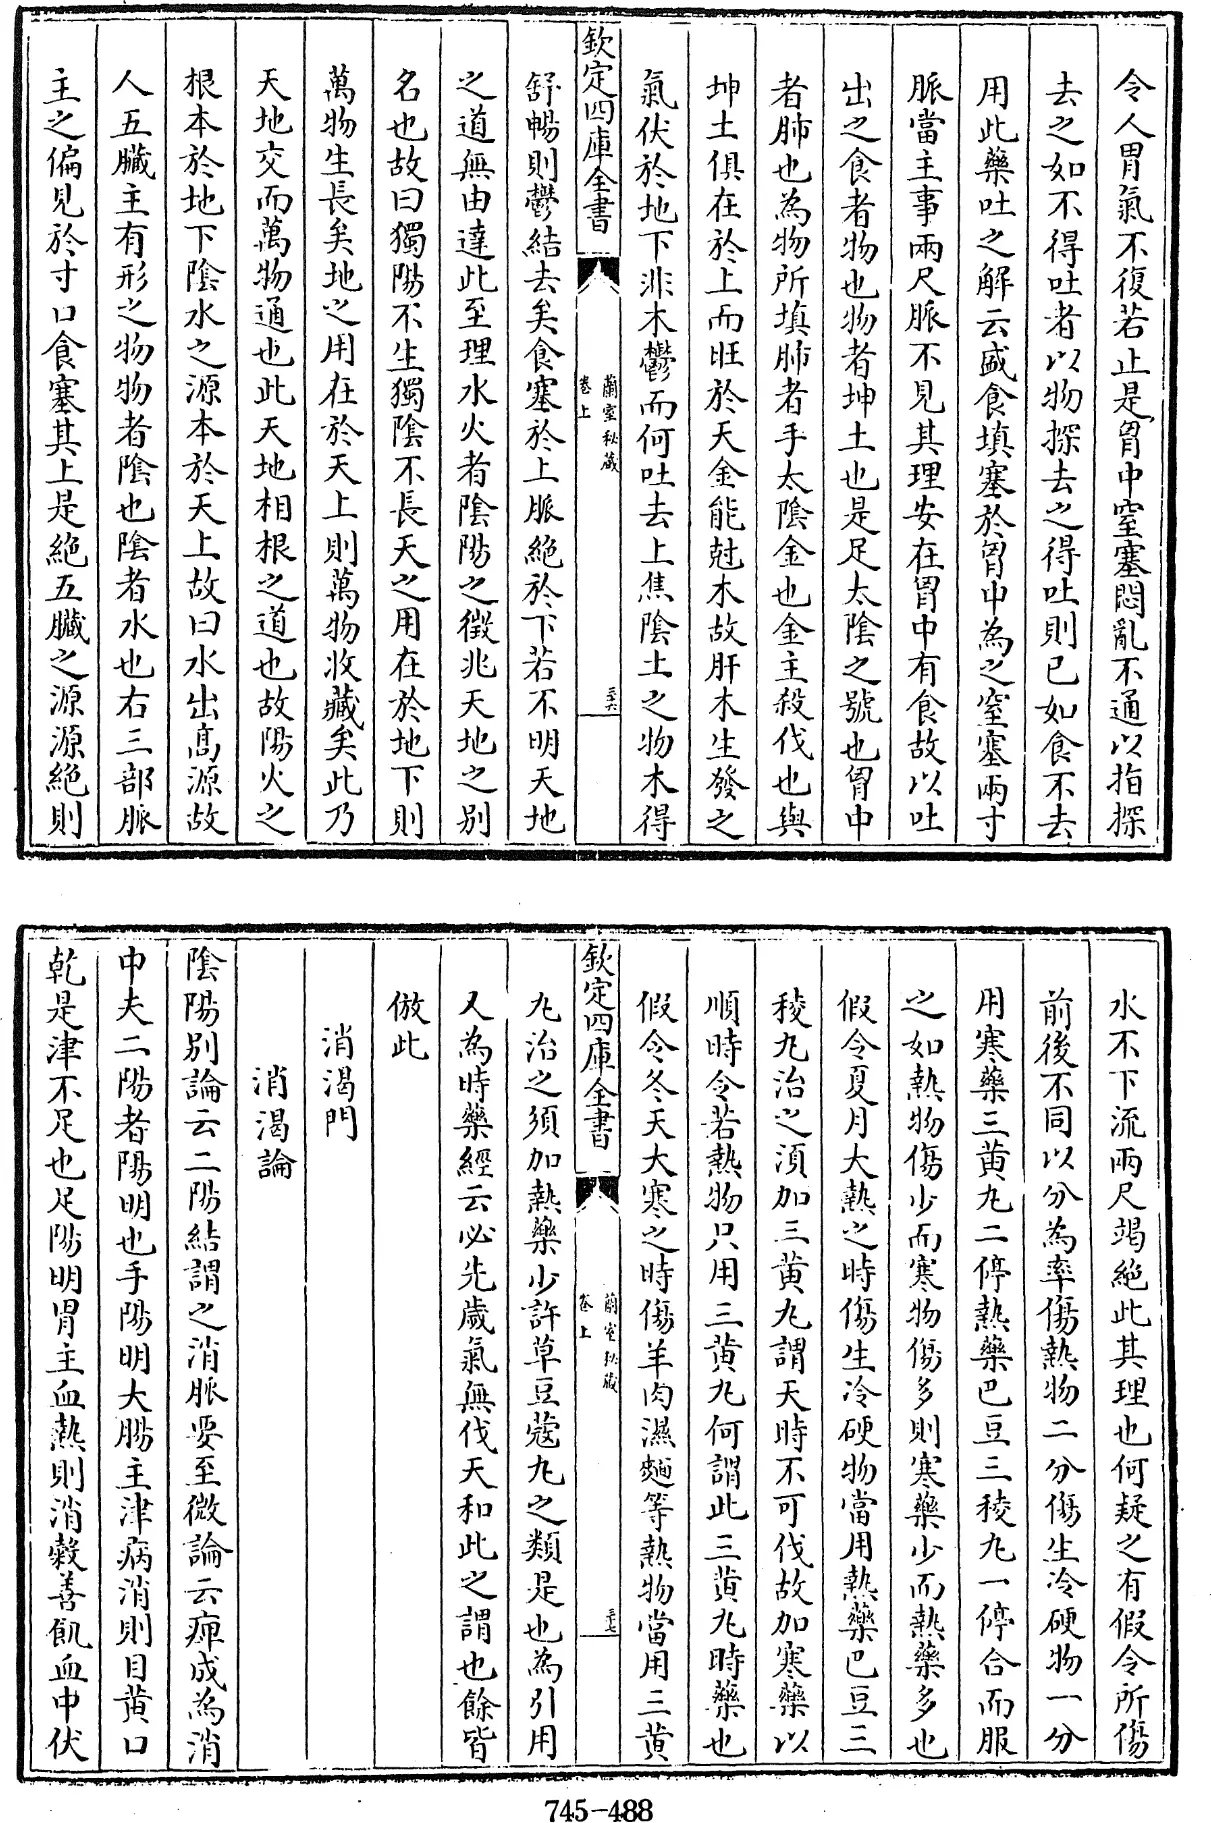 令人胃氣不復若止是胷中窒塞悶亂不通以指探
去之如不得吐者以物探去之得吐則已如食不去
用此藥吐之解云盛食填塞於胷中為之窒塞兩寸
脈當主事兩尺脈不見其理安在胷中有食故以吐
出之食者物也物者坤土也是足太陰之號也胷中
者肺也為物所填肺者手太陰金也金主殺伐也與
坤土俱在於上而旺於天金能尅木故肝木生發之
氣伏於地下非木鬱而何吐去上焦陰土之物木得
欽定四庫全書
蘭室秘藏
卷上
三十六
舒暢則鬱結去矣食塞於上脈絕於下若不明天地
之道無由達此至理水火者陰陽之徵兆天地之別
名也故曰獨陽不生獨陰不長天之用在於地下則
萬物生長矣地之用在於天上則萬物收藏矣此乃
天地交而萬物通也此天地相根之道也故陽火之
根本於地下陰水之源本於天上故曰水出高源故
人五臟主有形之物物者陰也陰者水也右三部脈
主之偏見於寸口食塞其上是絕五臟之源源絕則
水不下流兩尺竭絕此其理也何疑之有假令所傷
前後不同以分為率傷熱物二分傷生冷硬物一分
用寒藥三黃丸二停熱藥巴豆三稜丸一停合而服
之如熱物傷少而寒物傷多則寒藥少而熱藥多也
假令夏月大熱之時傷生冷硬物當用熱藥巴豆三
稜丸治之須加三黃丸謂天時不可伐故加寒藥以
順時令若熱物只用三黃丸何謂此三黃丸時藥也
假令冬天大寒之時傷羊肉濕麵等熱物當用三黃
欽定四庫全書
蘭室秘藏
卷上
三十七
丸治之須加熱藥少許草豆蔻丸之類是也為引用
又為時藥經云必先歲氣無伐天和此之謂也餘皆
倣此
消渴門
消渴論
陰陽別論云二陽結謂之消脈要至微論云癉成為消
中夫二陽者陽明也手陽明大腸主津病消則目黃口
乾是津不足也足陽明胃主血熱則消穀善飢血中伏
745-488